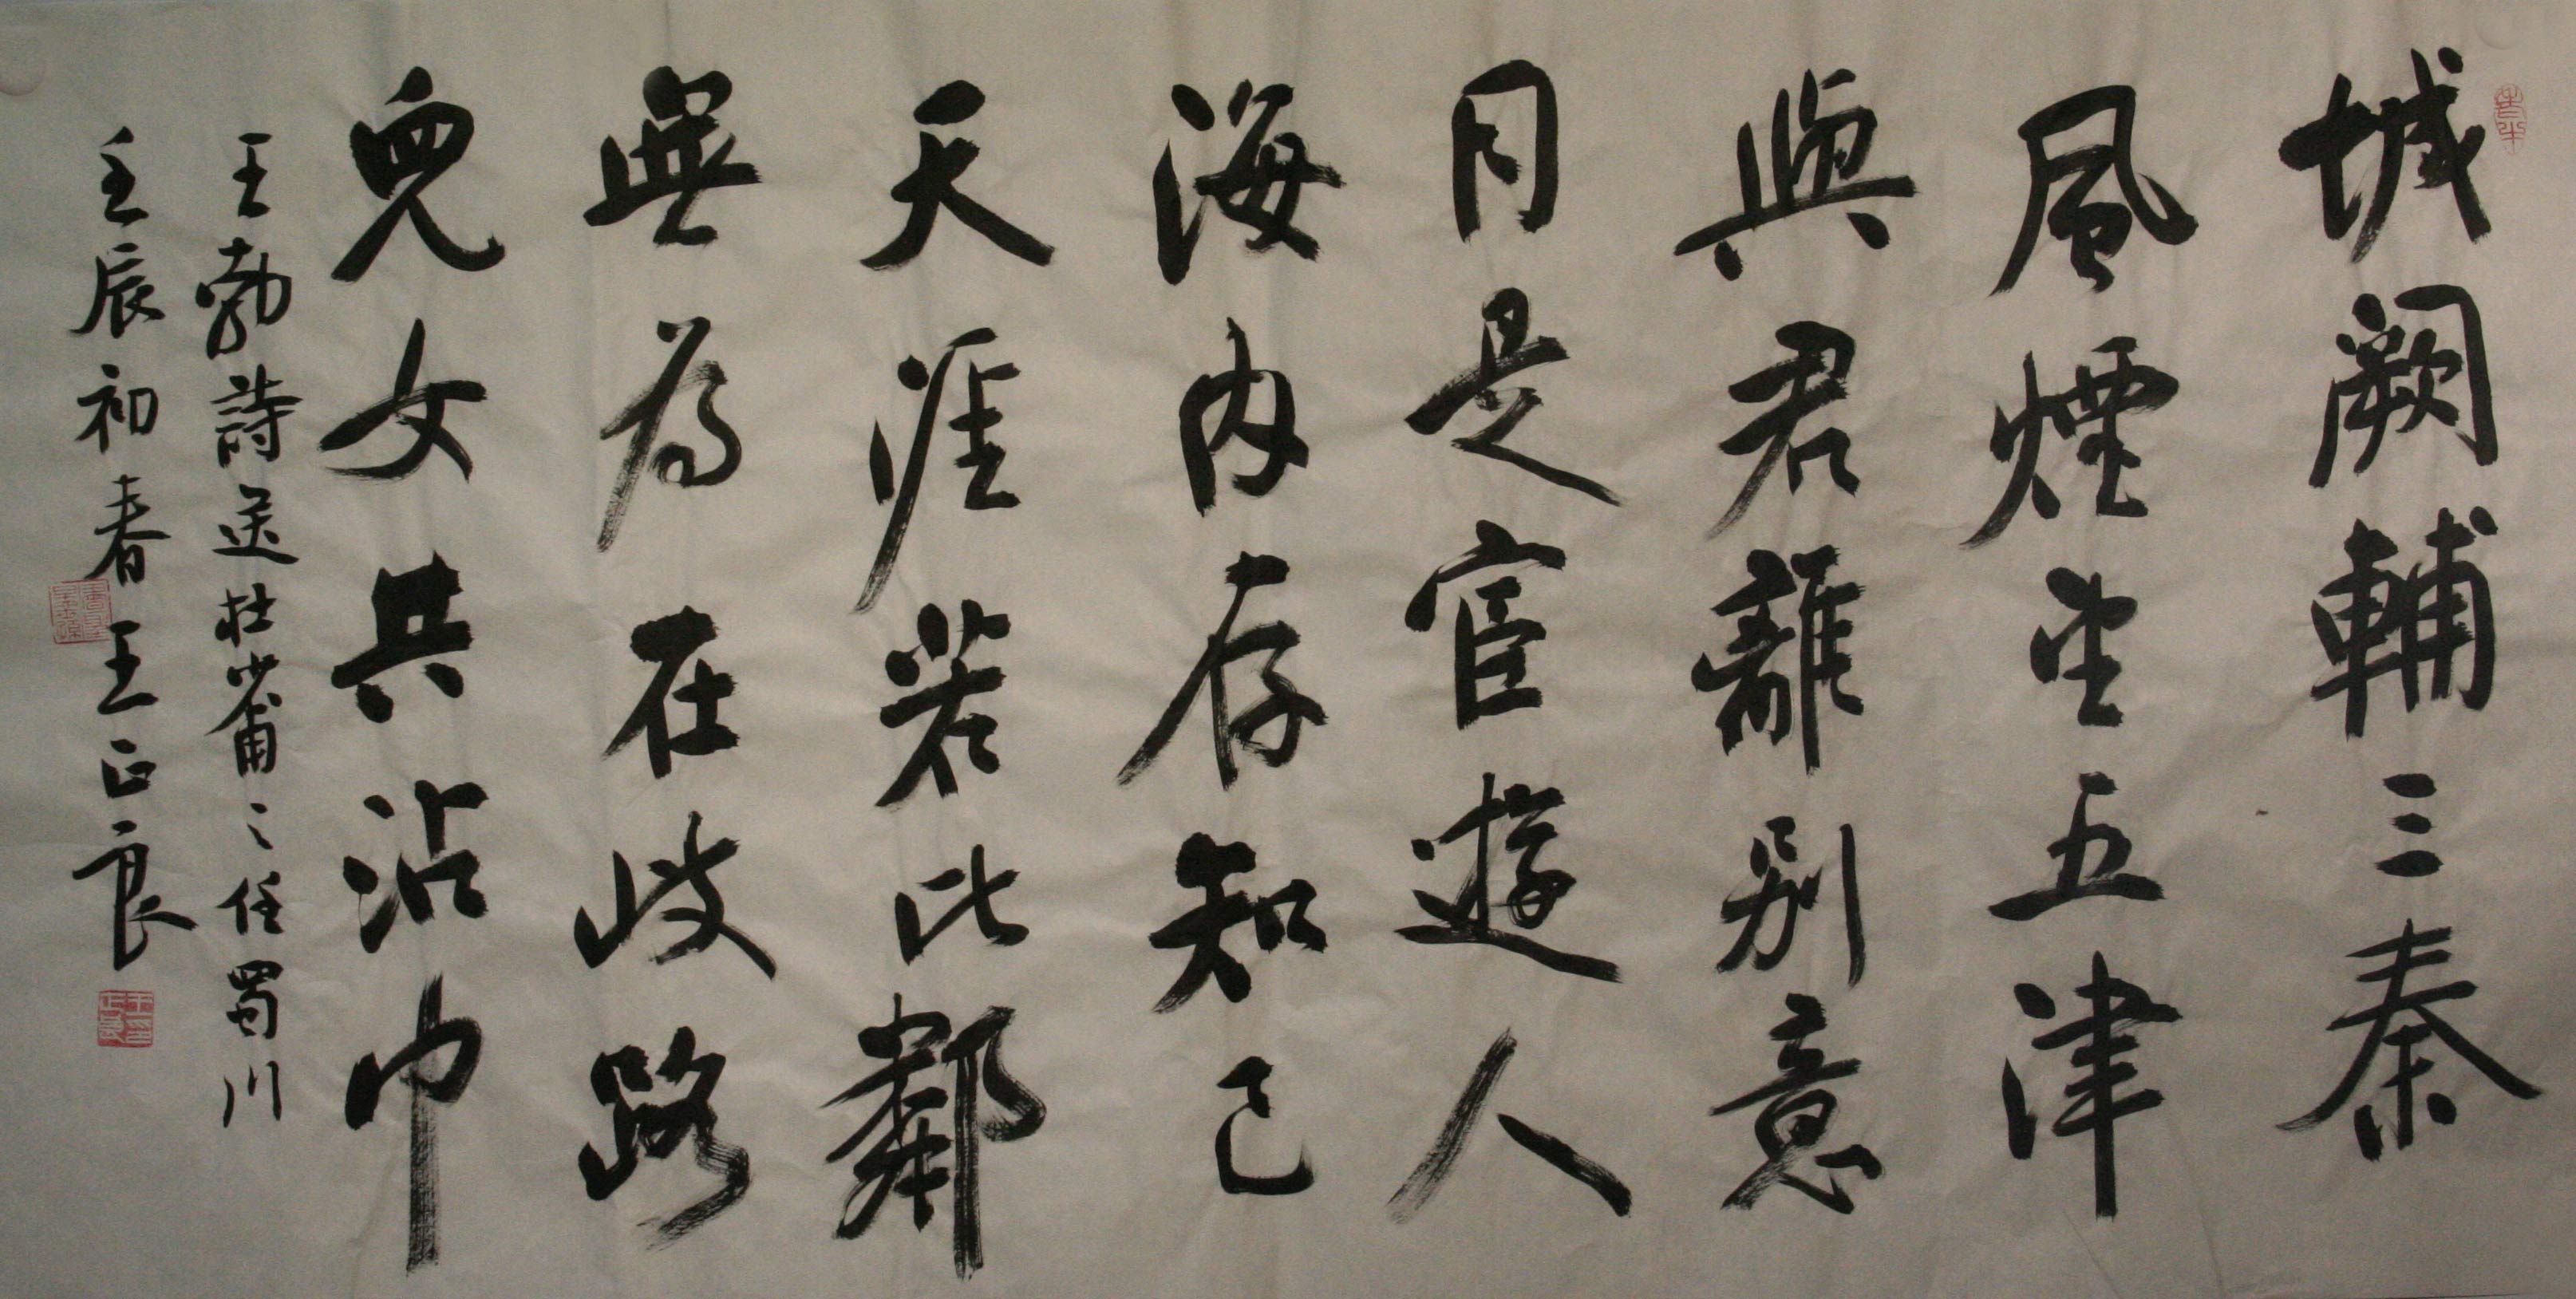 城闕輔三秦
風煙望五津
與君離别意
同是宦遊人
海内存知己
天涯若比鄰
無為在歧路
兒女共沾巾
王勃詩送杜少甫之任蜀川
壬辰初春王正良